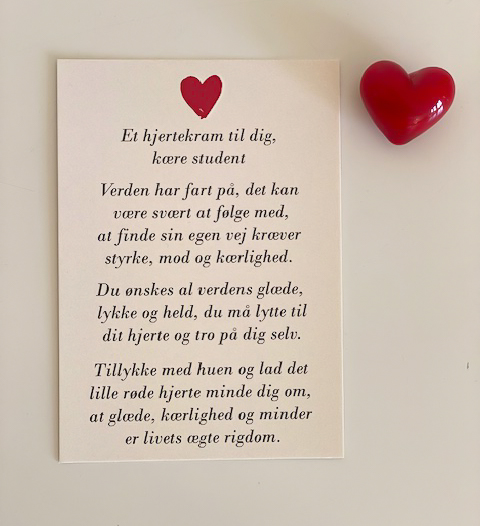 Et hjertekram til dig,
kære student
Verden har fart på, det kan
være svært at følge med,
at finde sin egen vej kræver
styrke, mod og kærlighed.
Du ønskes al verdens glæde,
lykke og held, du må lytte til
dit hjerte og tro på dig selv.
Tillykke med huen og lad det
lille røde hjerte minde dig om,
at glæde, kærlighed og minder
er livets ægte rigdom.